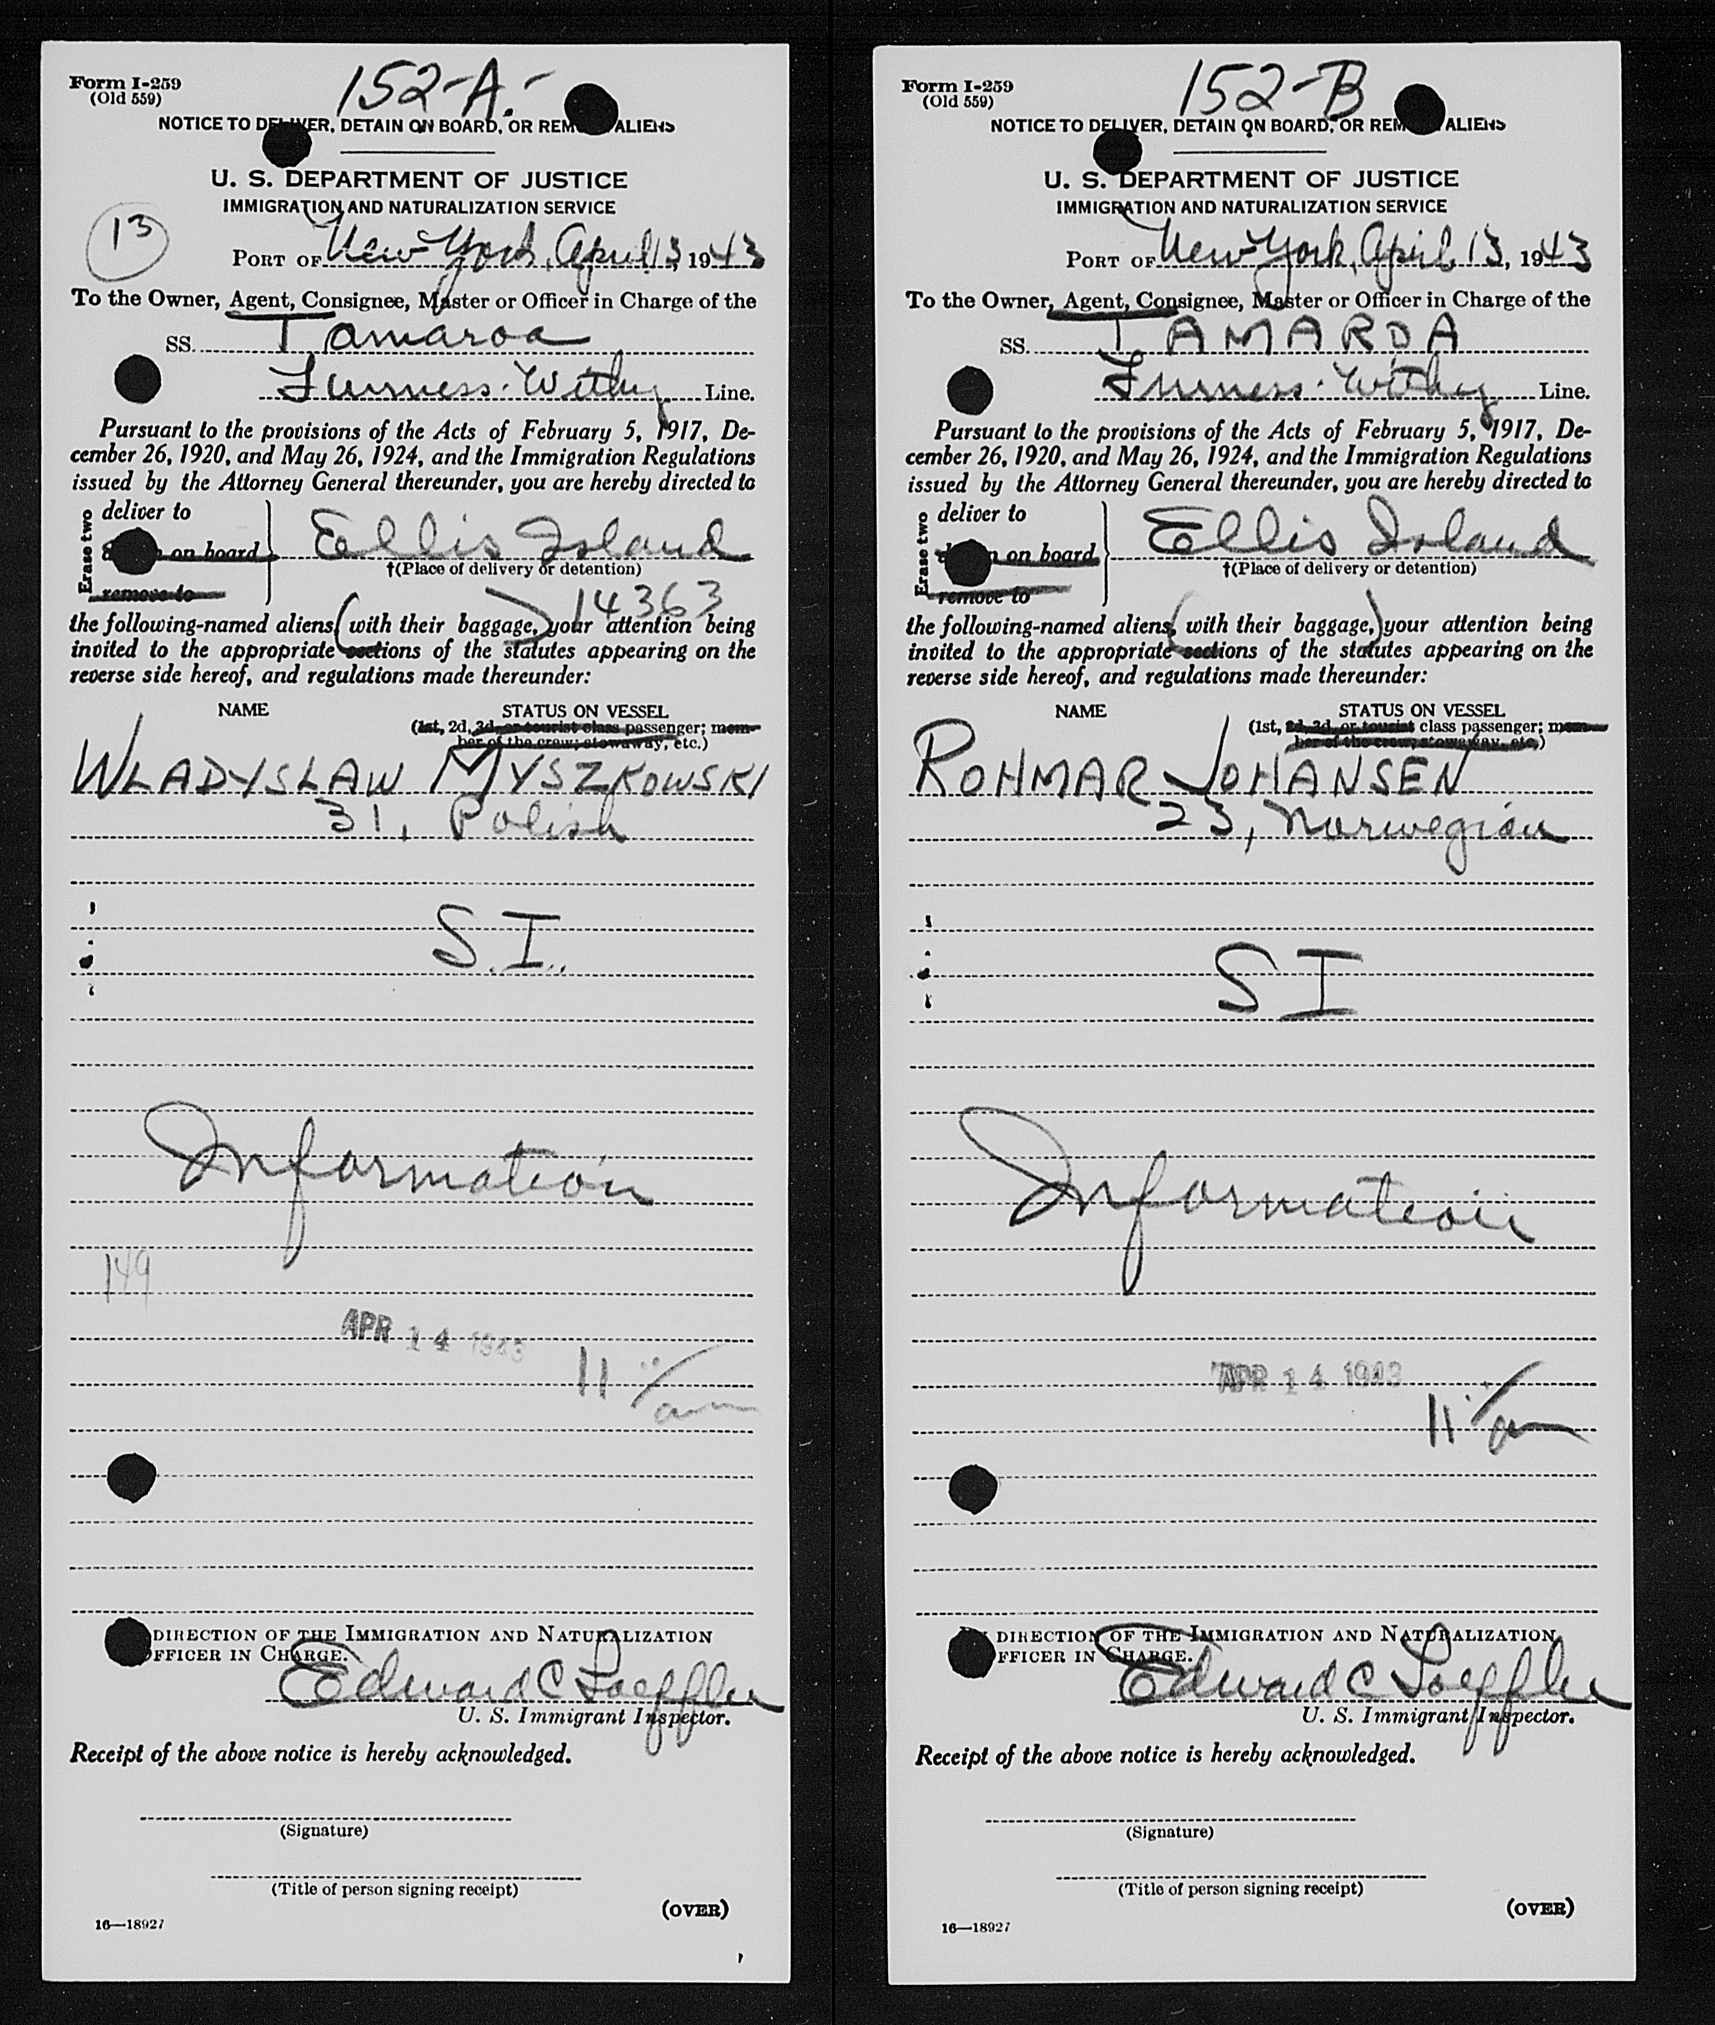 Form I-259
(Old 559)
152-A.-
NOTICE TO DELIVER, DETAIN ON BOARD, OR REMOVE ALIENS
U. S. DEPARTMENT OF JUSTICE
IMMIGRATION AND NATURALIZATION SERVICE
13
PORT OF New York, April 13, 1943
To the Owner, Agent, Consignee, Master or Officer in Charge of the
SS. Tamaroa
Furness-Withy Line.
Pursuant to the provisions of the Acts of February 5, 1917, De-
cember 26, 1920, and May 26, 1924, and the Immigration Regulations
issued by the Attorney General thereunder, you are hereby directed to
Erase two
deliver to
on board Ellis Island
†(Place of delivery or detention)
remove to
14363
the following-named aliens, (with their baggage,) your attention being
invited to the appropriate sections of the statutes appearing on the
reverse side hereof, and regulations made thereunder:
NAME STATUS ON VESSEL
(1st, 2d, 3d, or tourist class passenger; mem-
ber of the crew; stowaway, etc.)
WLADYSLAW MYSZKOWSKI
31, Polish
S.I.
Information
149
APR 14 1943
11 am
DIRECTION OF THE IMMIGRATION AND NATURALIZATION
OFFICER IN CHARGE.
Edward C Loeffler
U. S. Immigrant Inspector.
Receipt of the above notice is hereby acknowledged.
(Signature)
(Title of person signing receipt)
(OVER)
16—18927
Form I-259
(Old 559)
152-B
NOTICE TO DELIVER, DETAIN ON BOARD, OR REMOVE ALIENS
U. S. DEPARTMENT OF JUSTICE
IMMIGRATION AND NATURALIZATION SERVICE
PORT OF New York, April 13, 1943
To the Owner, Agent, Consignee, Master or Officer in Charge of the
SS. TAMAROA
Furness-Withy Line.
Pursuant to the provisions of the Acts of February 5, 1917, De-
cember 26, 1920, and May 26, 1924, and the Immigration Regulations
issued by the Attorney General thereunder, you are hereby directed to
Erase two
deliver to
on board Ellis Island
†(Place of delivery or detention)
remove to
the following-named aliens, (with their baggage,) your attention being
invited to the appropriate sections of the statutes appearing on the
reverse side hereof, and regulations made thereunder:
NAME STATUS ON VESSEL
(1st, 2d, 3d, or tourist class passenger; mem-
ber of the crew; stowaway, etc.)
ROHMAR JOHANSEN
23, Norwegian
SI
Information
APR 14 1943
11 am
DIRECTION OF THE IMMIGRATION AND NATURALIZATION
OFFICER IN CHARGE.
Edward C Loeffler
U. S. Immigrant Inspector.
Receipt of the above notice is hereby acknowledged.
(Signature)
(Title of person signing receipt)
(OVER)
16—18927